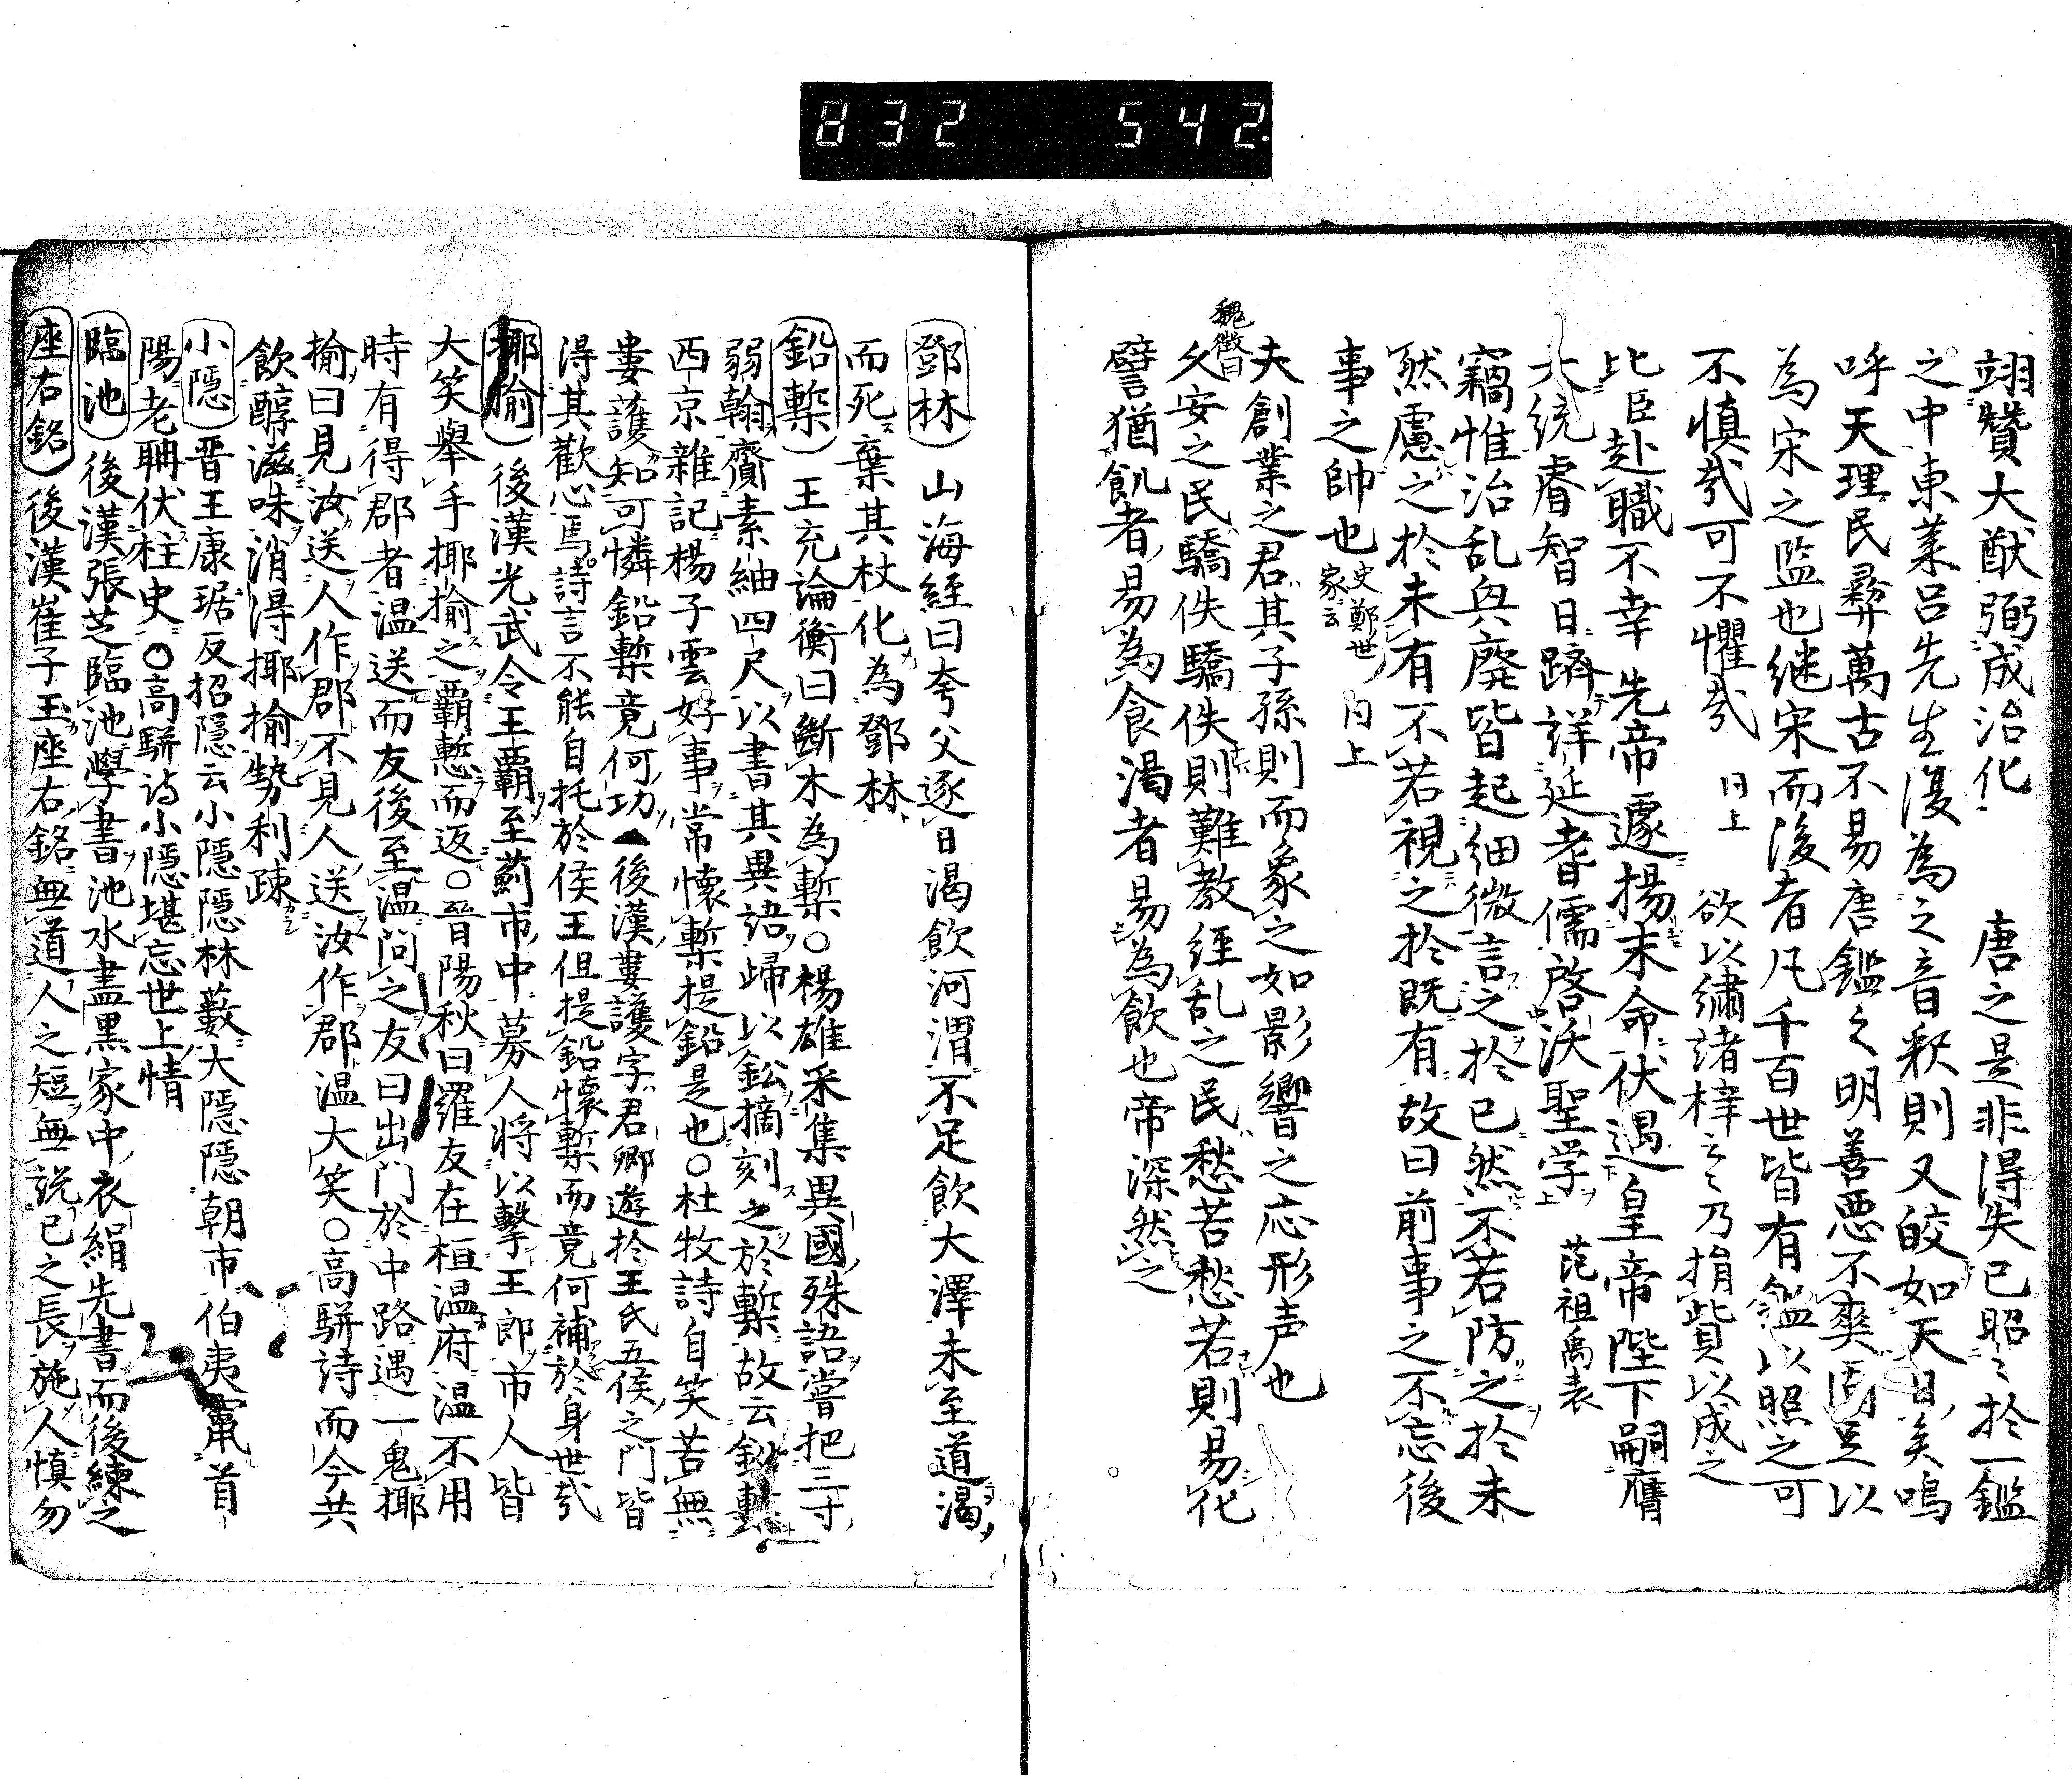 832 542.
翊賛大猷弼成治化 唐之是非得失已昭〻於一鑑
之中東莱呂先生復為之音釈則又皎如天日矣嗚
呼天理民彝萬古不易唐鑑之明善悪不爽固足以
為宋之監也継宋而後者凡千百世皆有鑑以照之可
不慎哉可不懼哉 同上 欲以繡諸梓云〻乃捐貲以成之
比臣赴職不幸先帝遽揚末命伏遇皇帝陛下嗣膺
大統睿智日躋詳延耆儒啓沃聖学 范祖禹表
竊惟治乱與廃皆起細微言之於已然不若防之於未
然慮之於未有不若視之於既有故曰前事之不忘後
事之帥也 史鄭世家云 同上
夫創業之君其子孫則而象之如影響之応形声也
魏徴曰
久安之民驕佚驕佚則難教経乱之民愁苦愁若則易化
譬猶飢者易為食渇者易為飲也帝深然之
鄧林 山海経曰夸父逐日渇飲河渭不足飲大澤未至道渇
而死棄其杖化為鄧林
鉛槧 王充論衡曰断木為槧○楊雄采集異國殊語嘗把三寸
弱翰齎素紬四尺以書其異語歸以鉛摘刻之於槧故云鉛槧
西京雜記楊子雲好事常懷槧提鉛是也○杜牧詩自笑苦無
婁護知可憐鉛槧竟何功▲後漢婁護字君卿遊於王氏五侯之門皆
得其歡心焉詩言不能自托於侯王但提鉛懐槧而竟何補於身世哉
揶揄 後漢光武令王覇至薊市中募人将以擊王郎市人皆
大笑舉手揶揄之覇慙而返○晋陽秋曰羅友在桓温府温不用
時有得郡者温送而友後至温問之友曰出門於中路遇一鬼揶
揄曰見汝送人作郡不見人送汝作郡温大笑○高駢詩而今共
飲醇滋味消得揶揄勢利疎
小隠 晋王康琚反招隠云小隠隠林藪大隠隠朝市伯夷竄首
陽老聃伏柱史○高駢詩小隠堪忘世上情
臨池 後漢張芝臨池學書池水盡黒家中衣絹先書而後練之
座右銘 後漢崔子玉座右銘無道人之短無説已之長施人慎勿